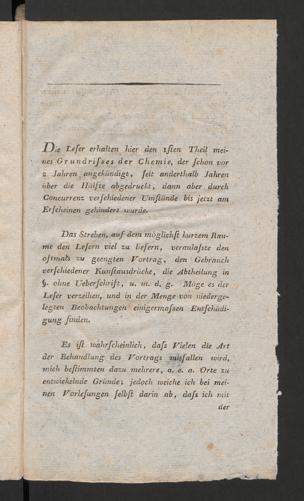 Die Leſer erhalten hier den 1ſten Theil mei-
nes Grundriſses der Chemie, der ſchon vor
2 Jahren angekündigt, ſeit anderthalb Jahren
über die Hälfte abgedruckt, dann aber durch
Concurrenz verſchiedener Umſtände bis jetzt am
Erſcheinen gehindert wurde.
Das Streben, auf dem möglichſt kurzem Rau-
me den Leſern viel zu liefern, veranlaſste den
oftmals zu geengten Vortrag, den Gebrauch
verſchiedener Kunſtausdrücke, die Abtheilung in
§. ohne Ueberſchrift, u. m. d. g. Möge es der
Leſer verzeihen, und in der Menge von niederge-
legten Beobachtungen einigermaſsen Entſchädi-
gung finden.
Es iſt wahrſcheinlich, daſs Vielen die Art
der Behandlung des Vortrags misfallen wird,
mich beſtimmten dazu mehrere, a. e. a. Orte zu
entwickelnde Gründe; jedoch weiche ich bei mei-
nen Vorleſungen ſelbſt darin ab, daſs ich mit
der